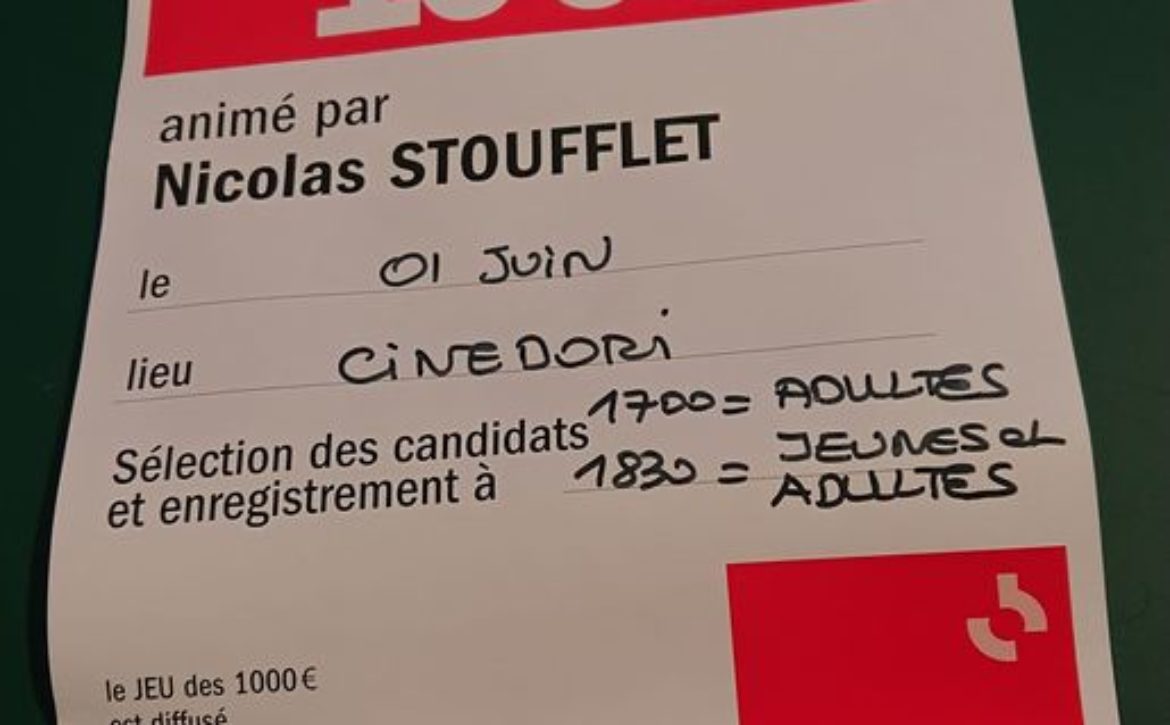 animé par
Nicolas STOUFFLET
le 01 JUIN
lieu CINEDORI
Sélection des candidats 1700 = ADULTES
et enregistrement à 1830 = JEUNES et
ADULTES
le JEU des 1000€
est diffusé